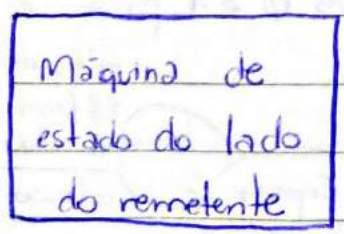 Máquina de
estado do lado
do remetente